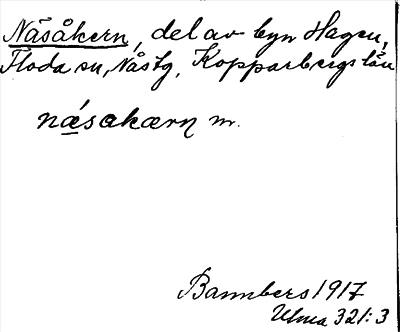 Näsåkern, del av byn Hagen,
Floda sn, Nås tg, Kopparbergs län
nǽsakærn m.
Bannbers 1917
Ulma 321:3